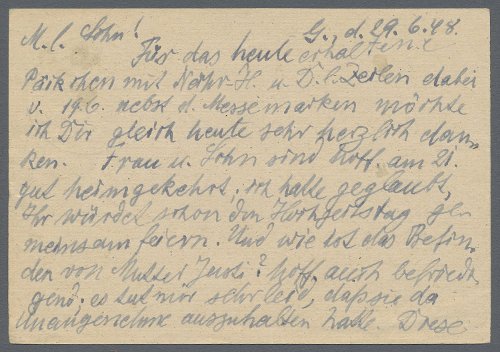 M. l. Sohn! G., d. 29.6.48.
Für das heute erhaltene
Päckchen mit N. u. D. l. Zeilen dabei
v. 19.6. nebst d. Messemarken möchte
ich Dir gleich heute sehr herzlich dan-
ken. Frau u. Sohn sind hoff. am 21.
gut heimgekehrt; ich hatte geglaubt,
Ihr würdet schon den Hochzeitstag ge-
meinsam feiern. Und wie ist das Befin-
den von Mutter? hoff. auch befriedi-
gend; es tut mir sehr leid, dass sie da
Unangenehme auszuhalten hatte. Diese